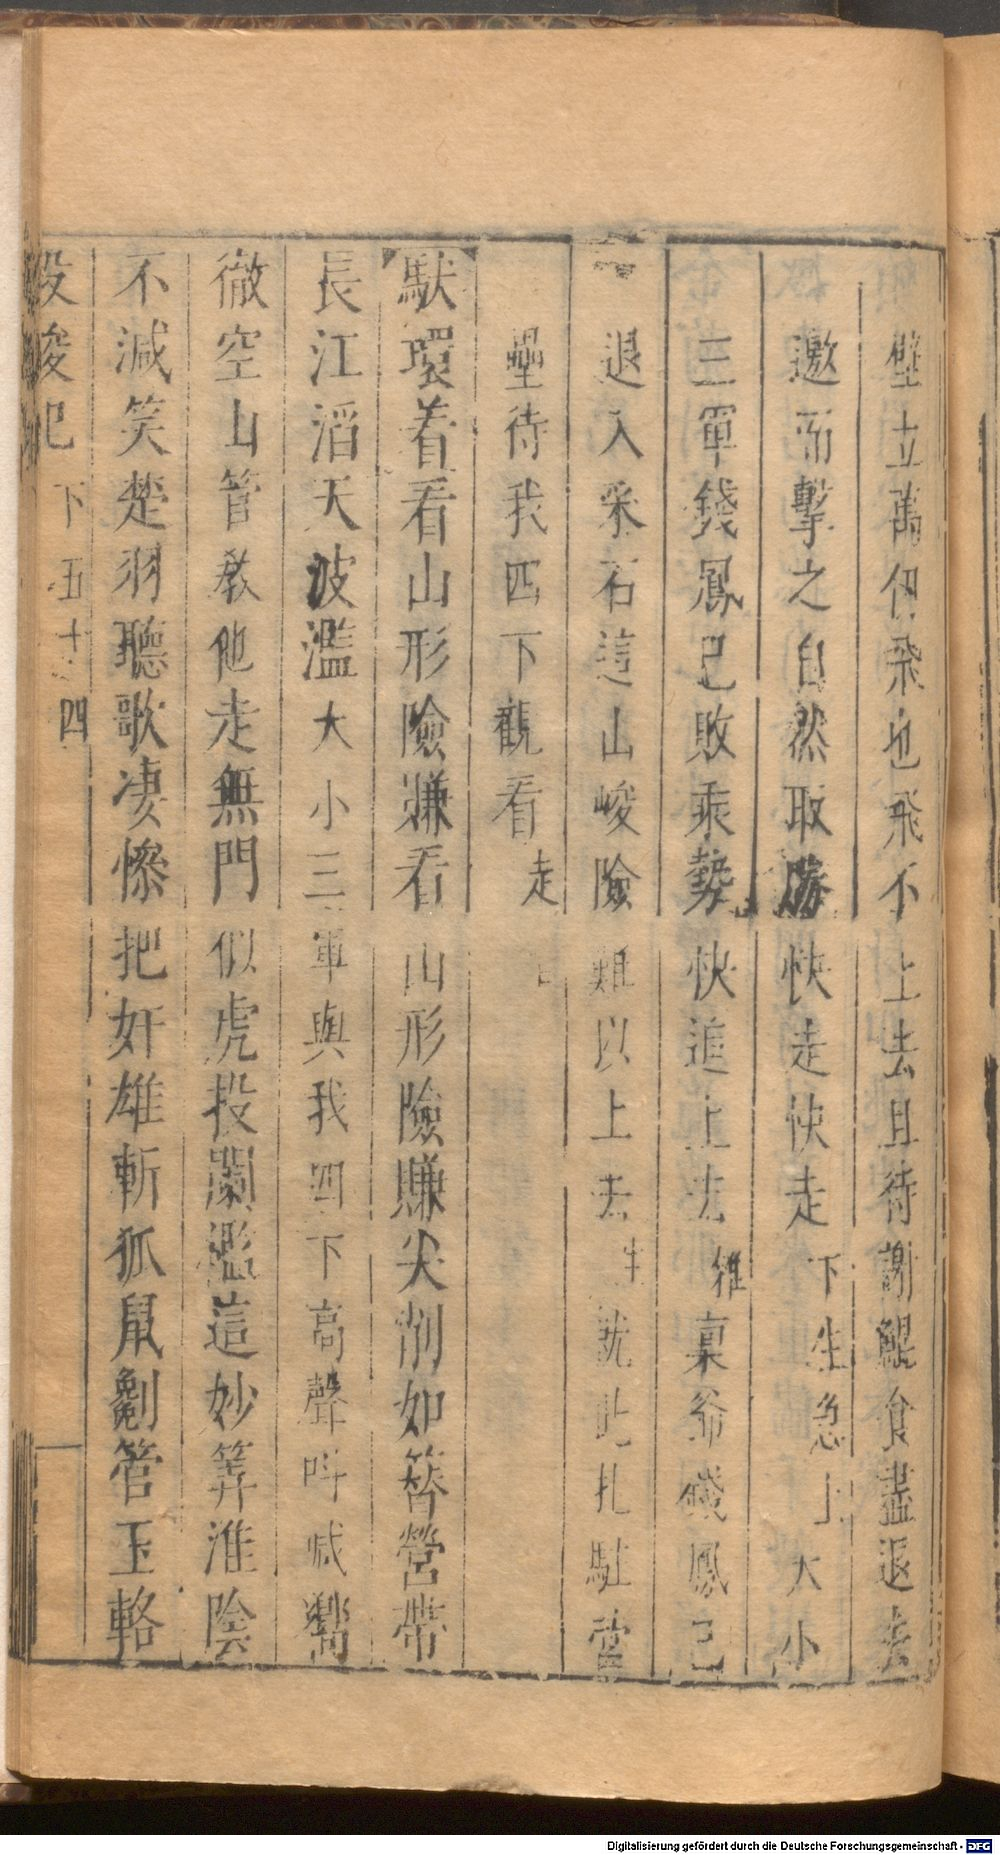 壁立萬仞飛也飛不上去且待謝鯤食盡退去
邀而擊之自然取勝快走快走下生急上大小
三軍錢鳳已敗乘勢快追上去雜稟爺錢鳳已
退入采石這山峻險難以上去生就此扎駐營
壘待我四下觀看走
駄環着看山形險賺看山形險賺尖削如簪營帶
長江滔天波濫大小三軍與我四下高聲叫喊響
徹空山管敎他走無門似虎投闌濫這妙筭淮陰
不減笑楚羽聽歌凄慘把奸雄斬狐鼠劖管玉輅
投梭記下五十四
Digitalisierung gefördert durch die Deutsche Forschungsgemeinschaft - DFG